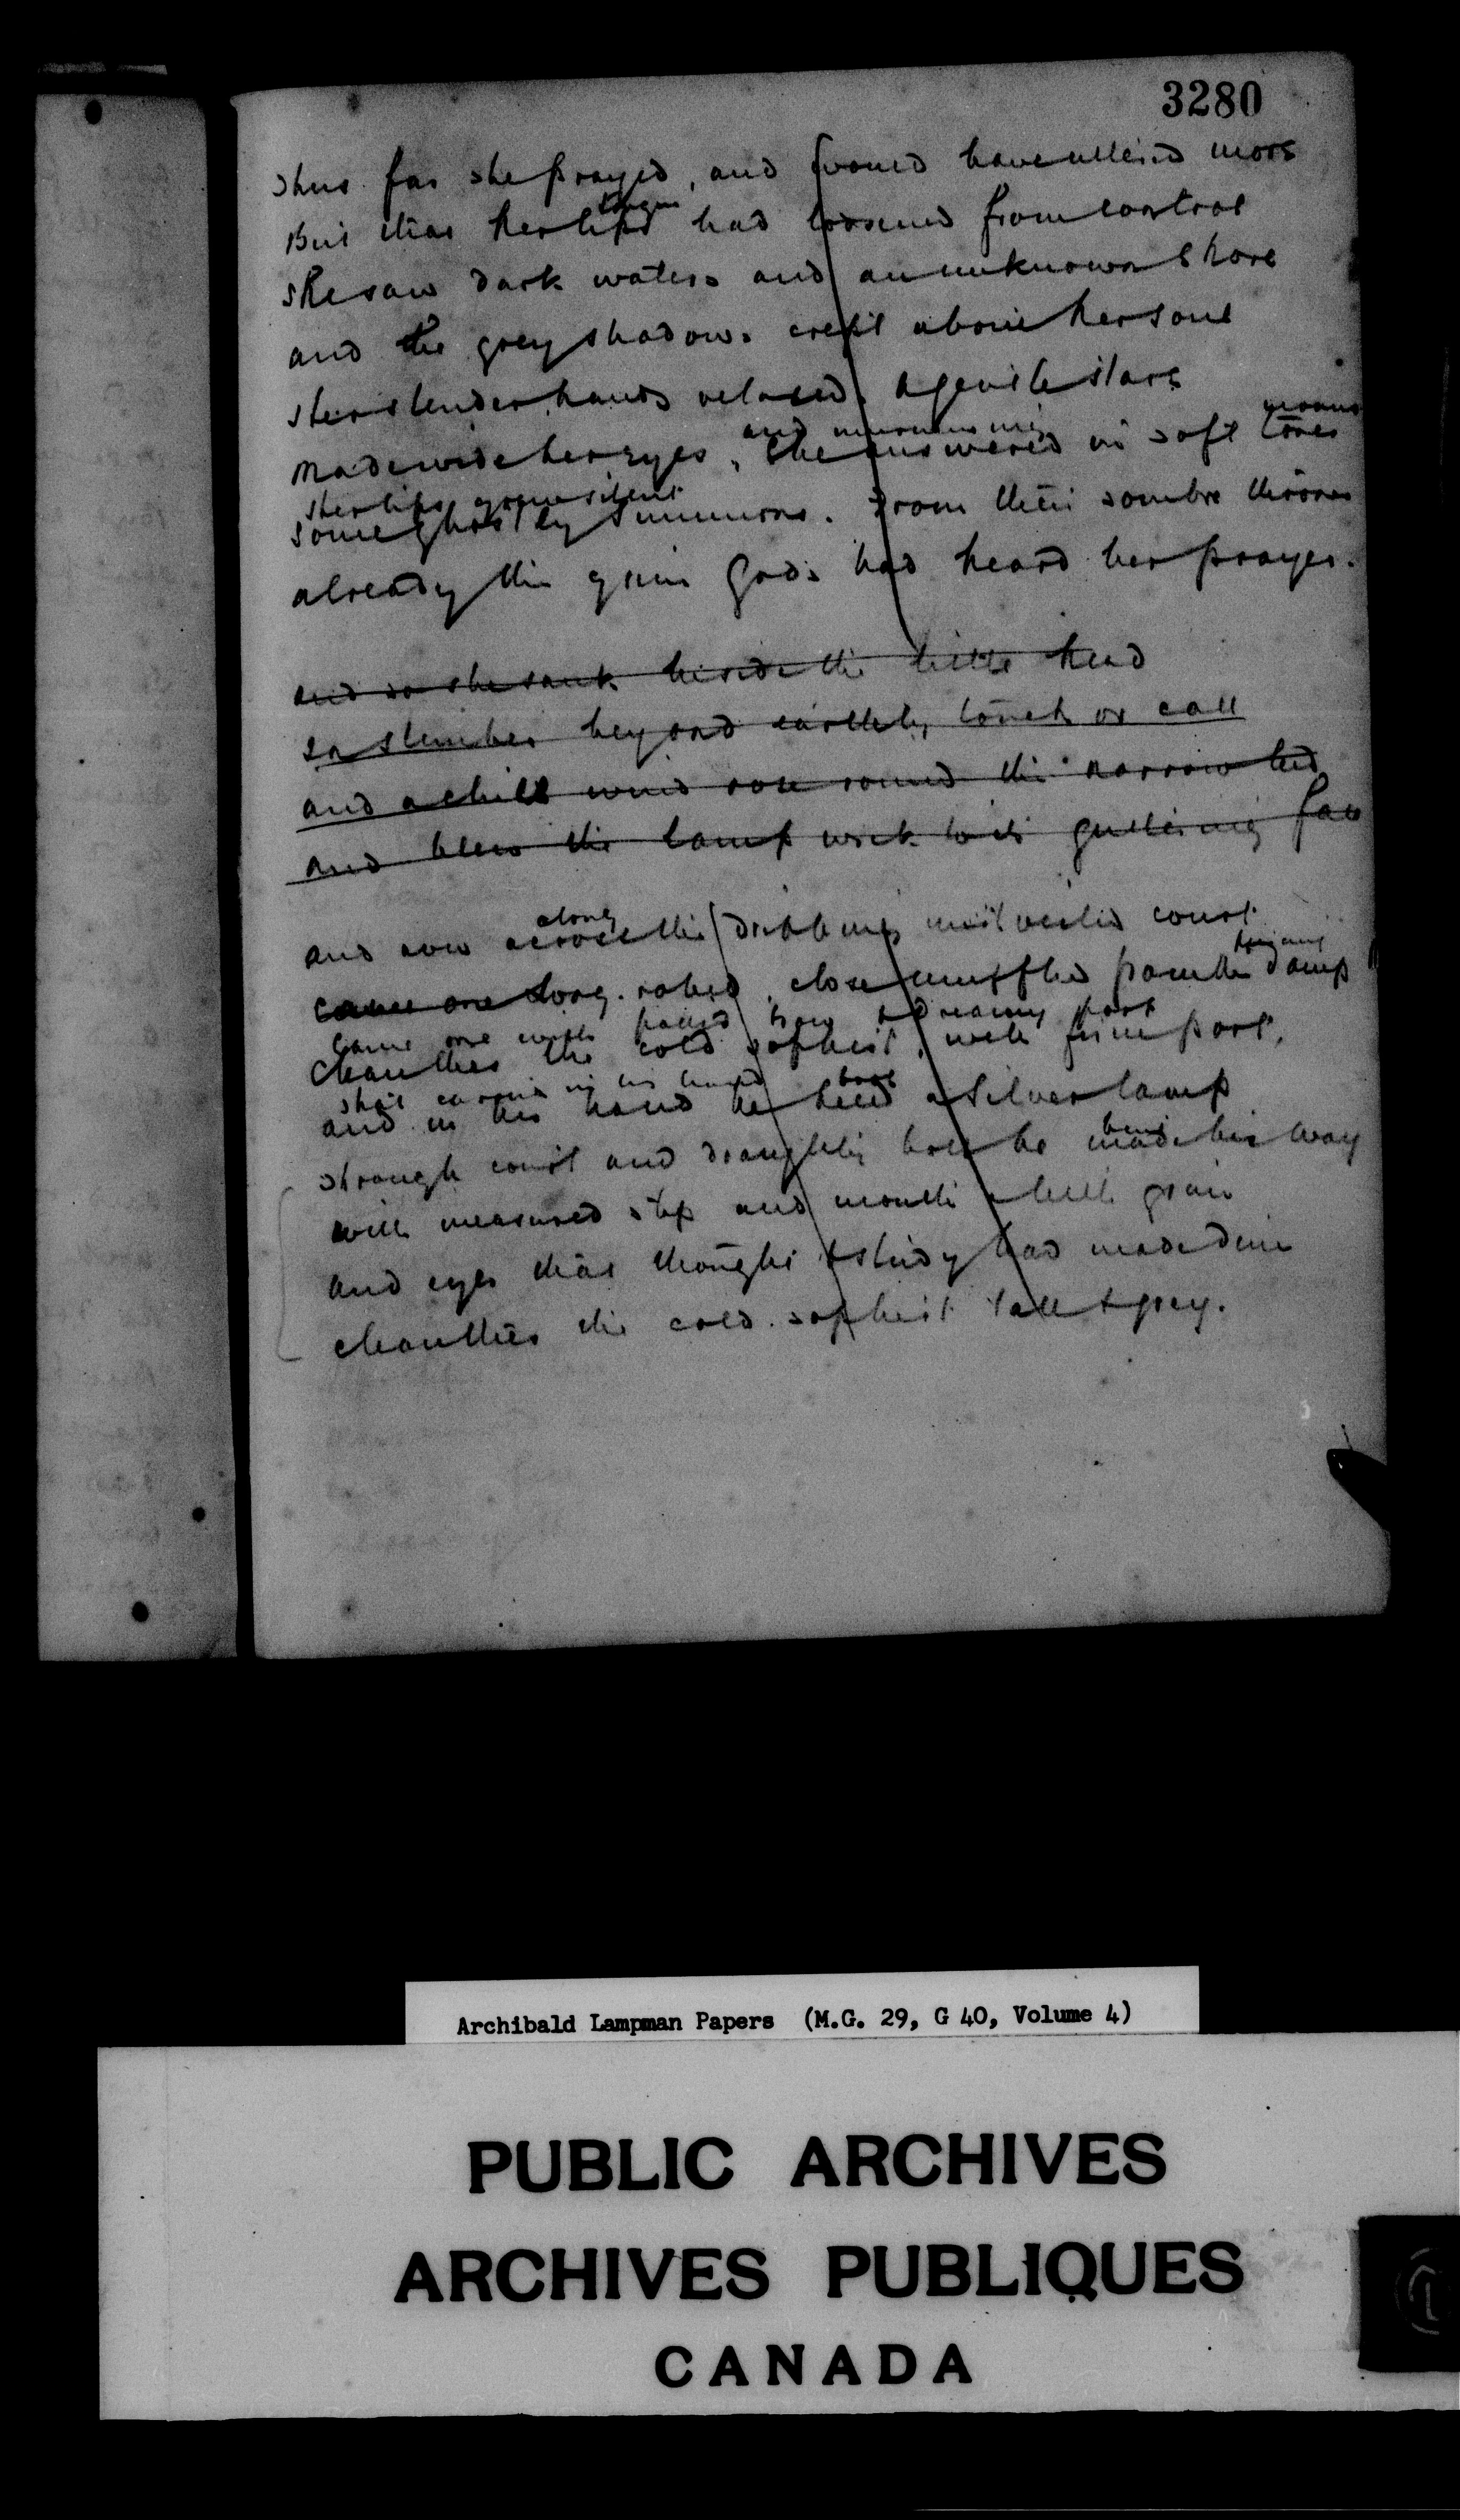 3280
Thus far she prayed, and would have uttered more
tongue
But that her lips had loosened from control
She saw dark waters and an unknown shore
And the grey shadows crept above her soul
Her slender hands relaxed. A gentle stare
and murmuring moans
Made wide her eyes, she answered in soft tones
Her lips grew silent
Some ghostly summons. From their sombre thrones
Already the grim gods had heard her prayer.
And so she sank beside the little head
In slumber beyond earthly touch or call
And a chill wind rose round the narrow bed
And blew the lamp wick to its guttering fall
along
And now across the dripping mist veiled court
Came one long robed, close muffled from the damp
Came one with paced brow & dreamy port
Cleanthes the cold sophist, with firm port,
That carried in his hand
And in his hand he held a silver lamp
bent
Through court and draughty hall he made his way
With measured step and mouth a little grim
And eyes that thought & study had made dim
Cleanthes the cold sophist tall & grey.
Archibald Lampman Papers (M.G. 29, G 40, Volume 4)
PUBLIC ARCHIVES
ARCHIVES PUBLIQUES
CANADA